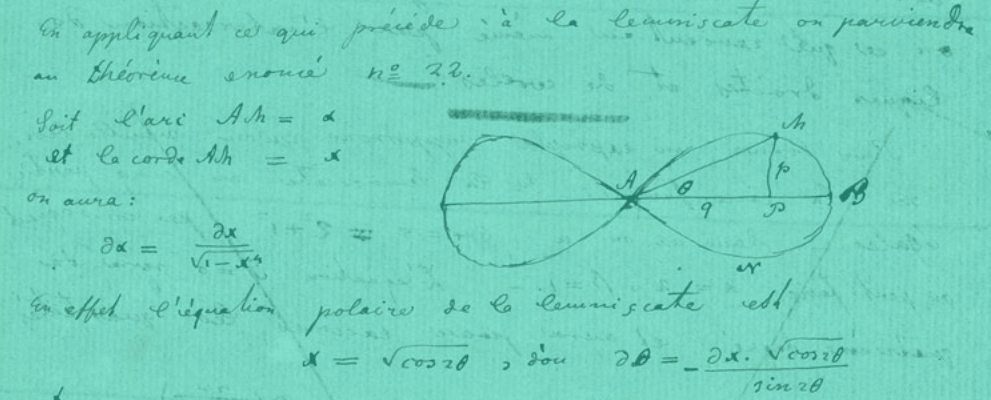 En appliquant ce qui précède à la lemniscate on parviendra
au théorème enoncé nº 22.
Soit l'arc AM = α
et la corde AM = x
on aura :
∂α = ∂x / √(1 - x⁴)
M
A θ p
q P B
N
En effet l'équation polaire de la lemniscate est
x = √cos 2θ , d'où ∂θ = - ∂x. √cos 2θ / sin 2θ